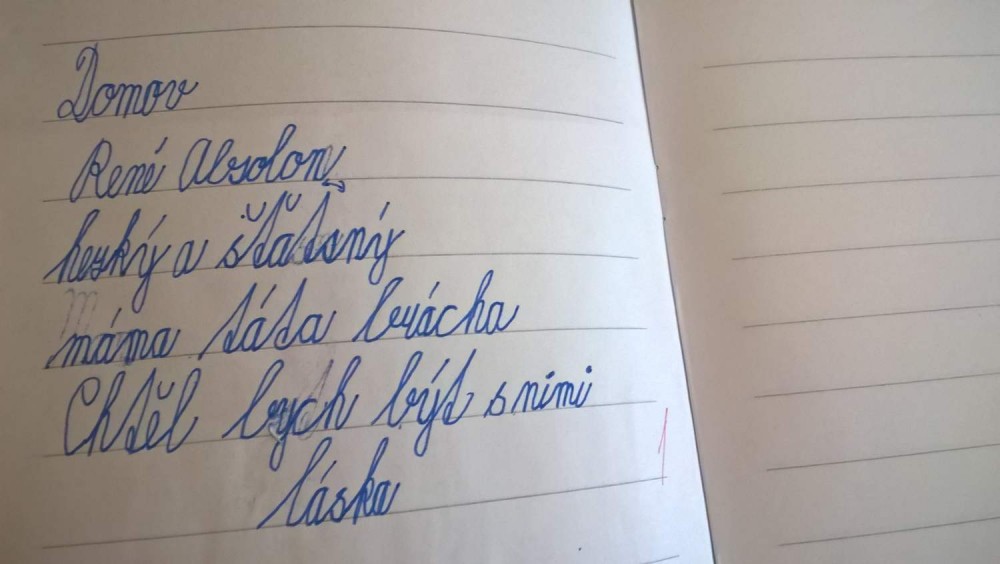 Domov
René Absolon
hezký a šťaťsný
máma táta brácha
Chtěl bych být s nimi
láska
1